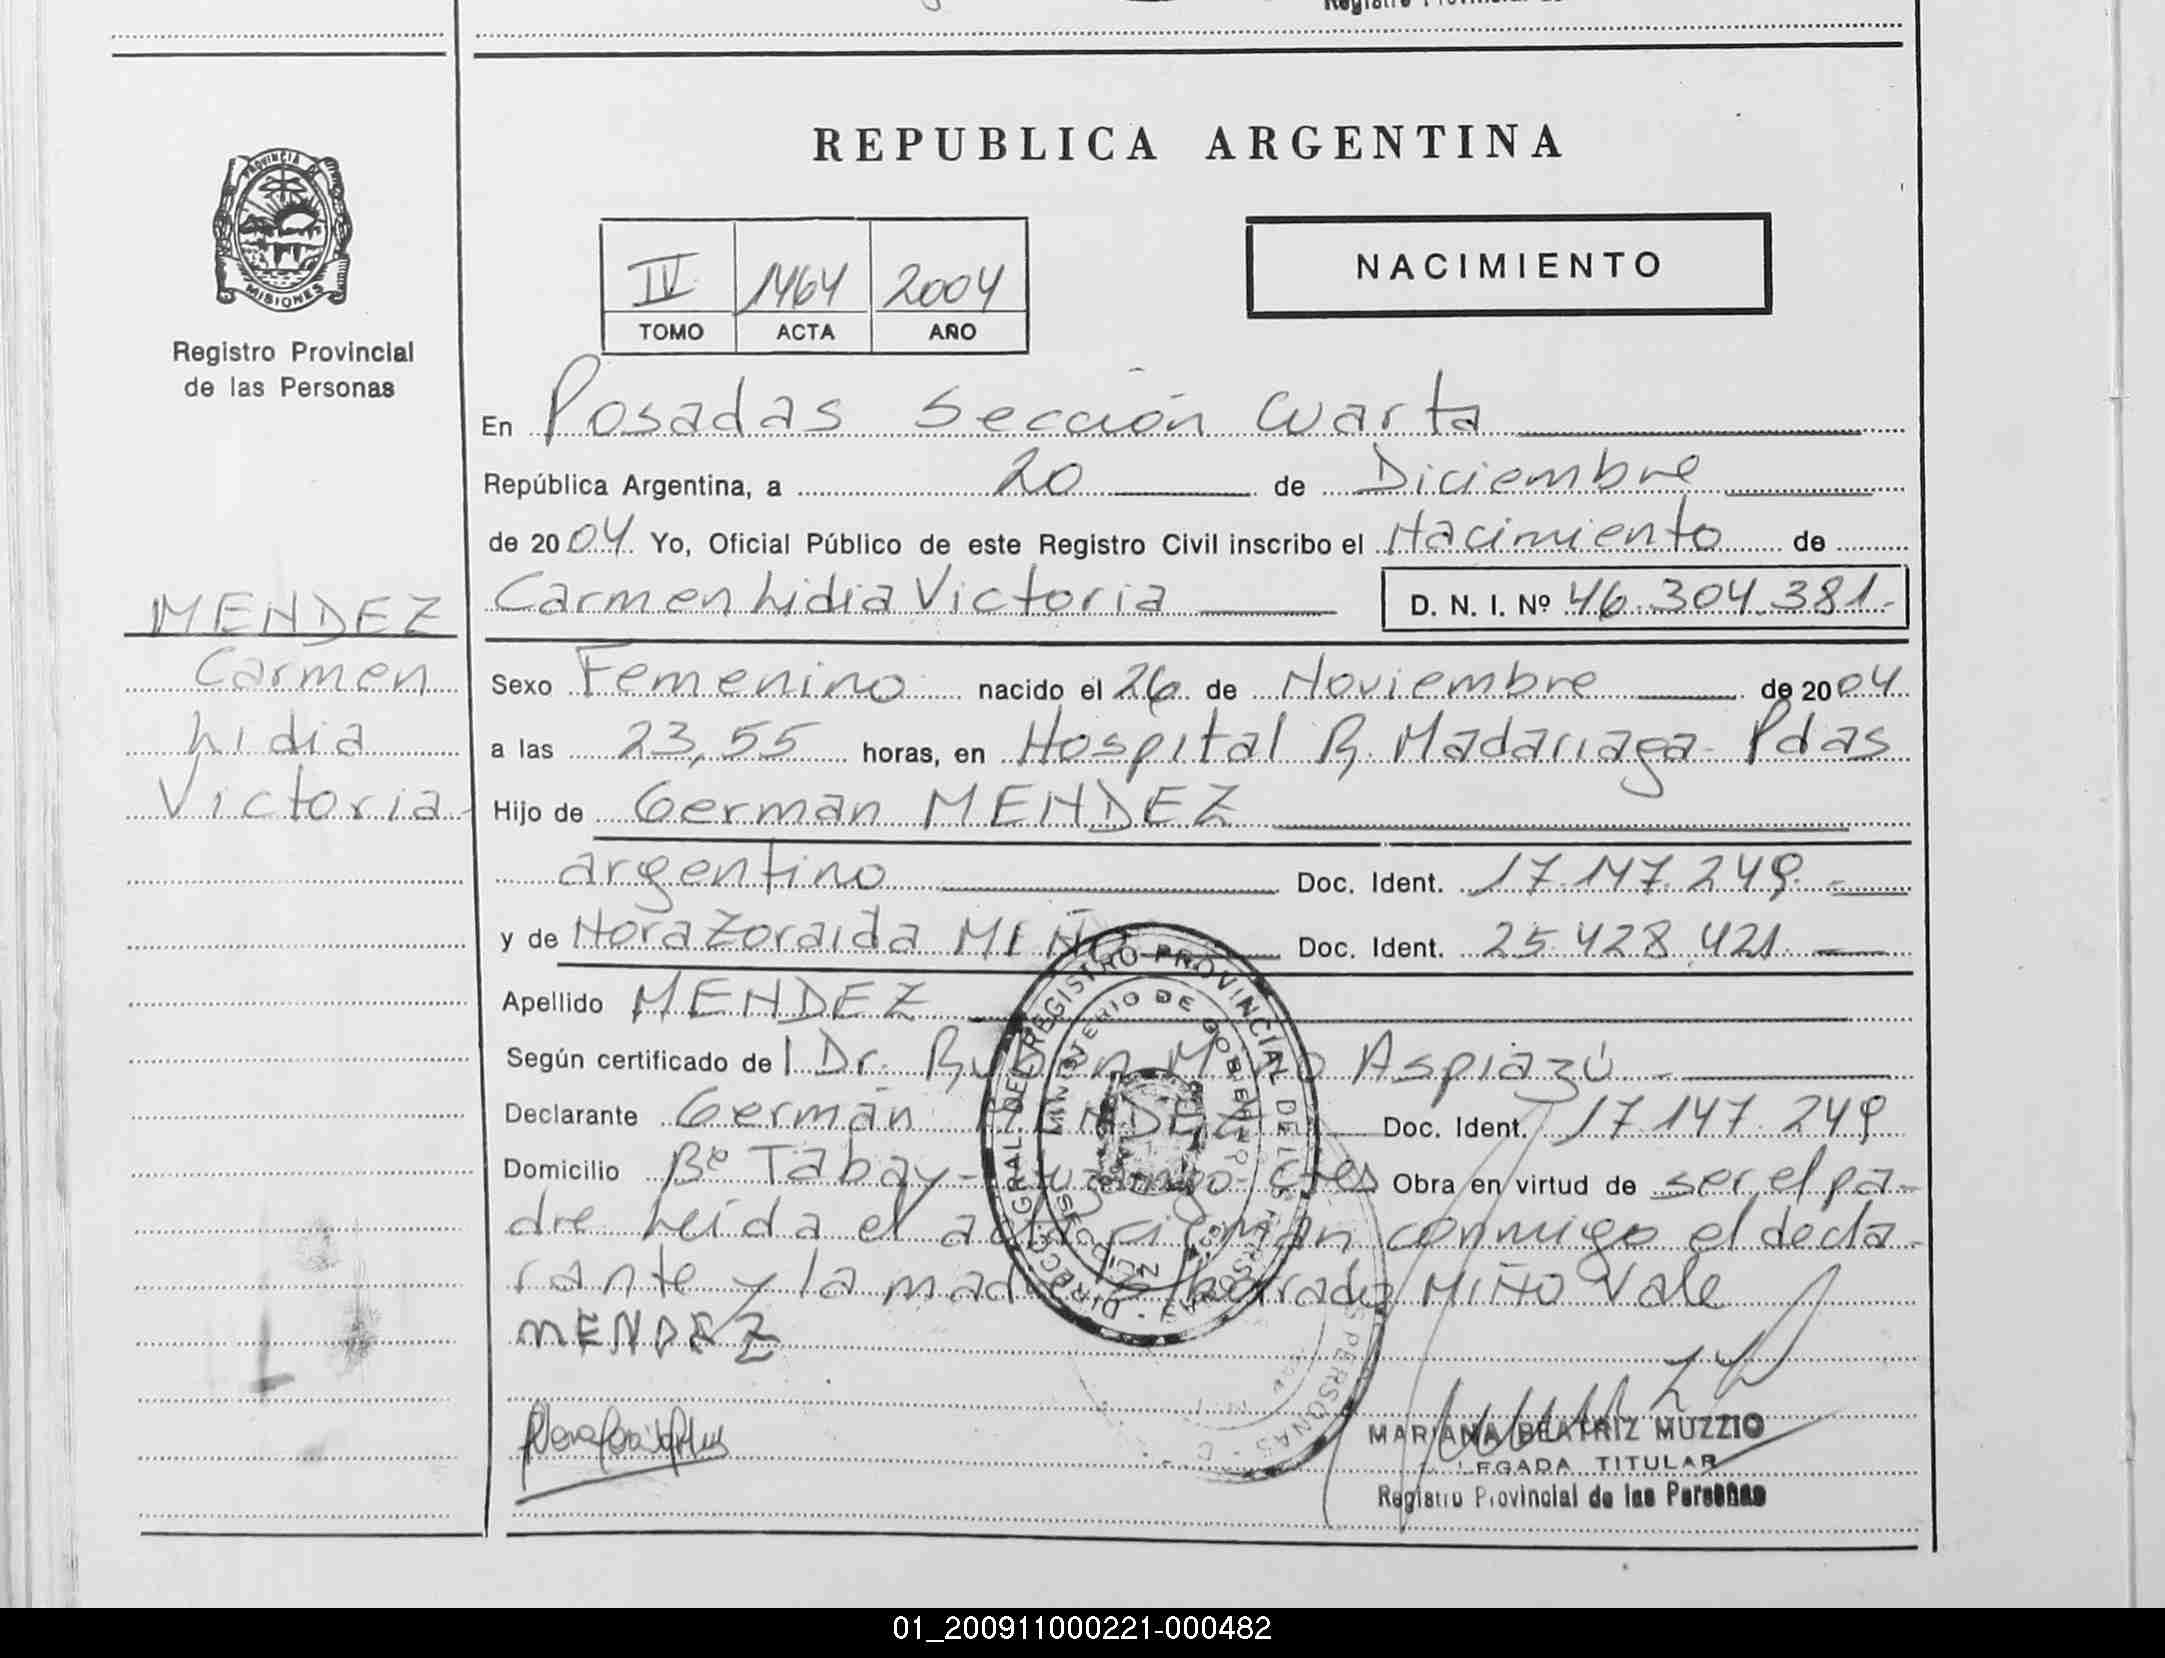 REPUBLICA ARGENTINA
PROVINCIA DE
MISIONES
Registro Provincial
de las Personas
IV 1464 2004
TOMO ACTA AÑO
NACIMIENTO
En Posadas Sección Cuarta
República Argentina, a 20 de Diciembre
de 2004 Yo, Oficial Público de este Registro Civil inscribo el Nacimiento de
MENDEZ
Carmen
Lidia
Victoria
Carmen Lidia Victoria D. N. I. Nº 46.304.381.
Sexo Femenino nacido el 26 de Noviembre de 2004
a las 23,55 horas, en Hospital R. Madariaga Pdas
Hijo de German MENDEZ
argentino Doc. Ident. 17.147.249.
y de Nora Zoraida MIÑO Doc. Ident. 25.428.421.
Apellido MENDEZ
Según certificado de l Dr. Rubén Aspiazú
Declarante Germán MENDEZ Doc. Ident. 17.147.249
Domicilio Bº Tabay - Ctes Obra en virtud de ser el pa-
dre Leída el acta firman conmigo el decla-
rante y la madre borrado MIÑO Vale
MENDEZ
DIRECCION GRAL. DEL REGISTRO PROVINCIAL DE LAS PERSONAS
MINISTERIO DE GOBIERNO
MARIANA BEATRIZ MUZZIO
LEGADA TITULAR
Registro Provincial de las Personas
01_200911000221-000482